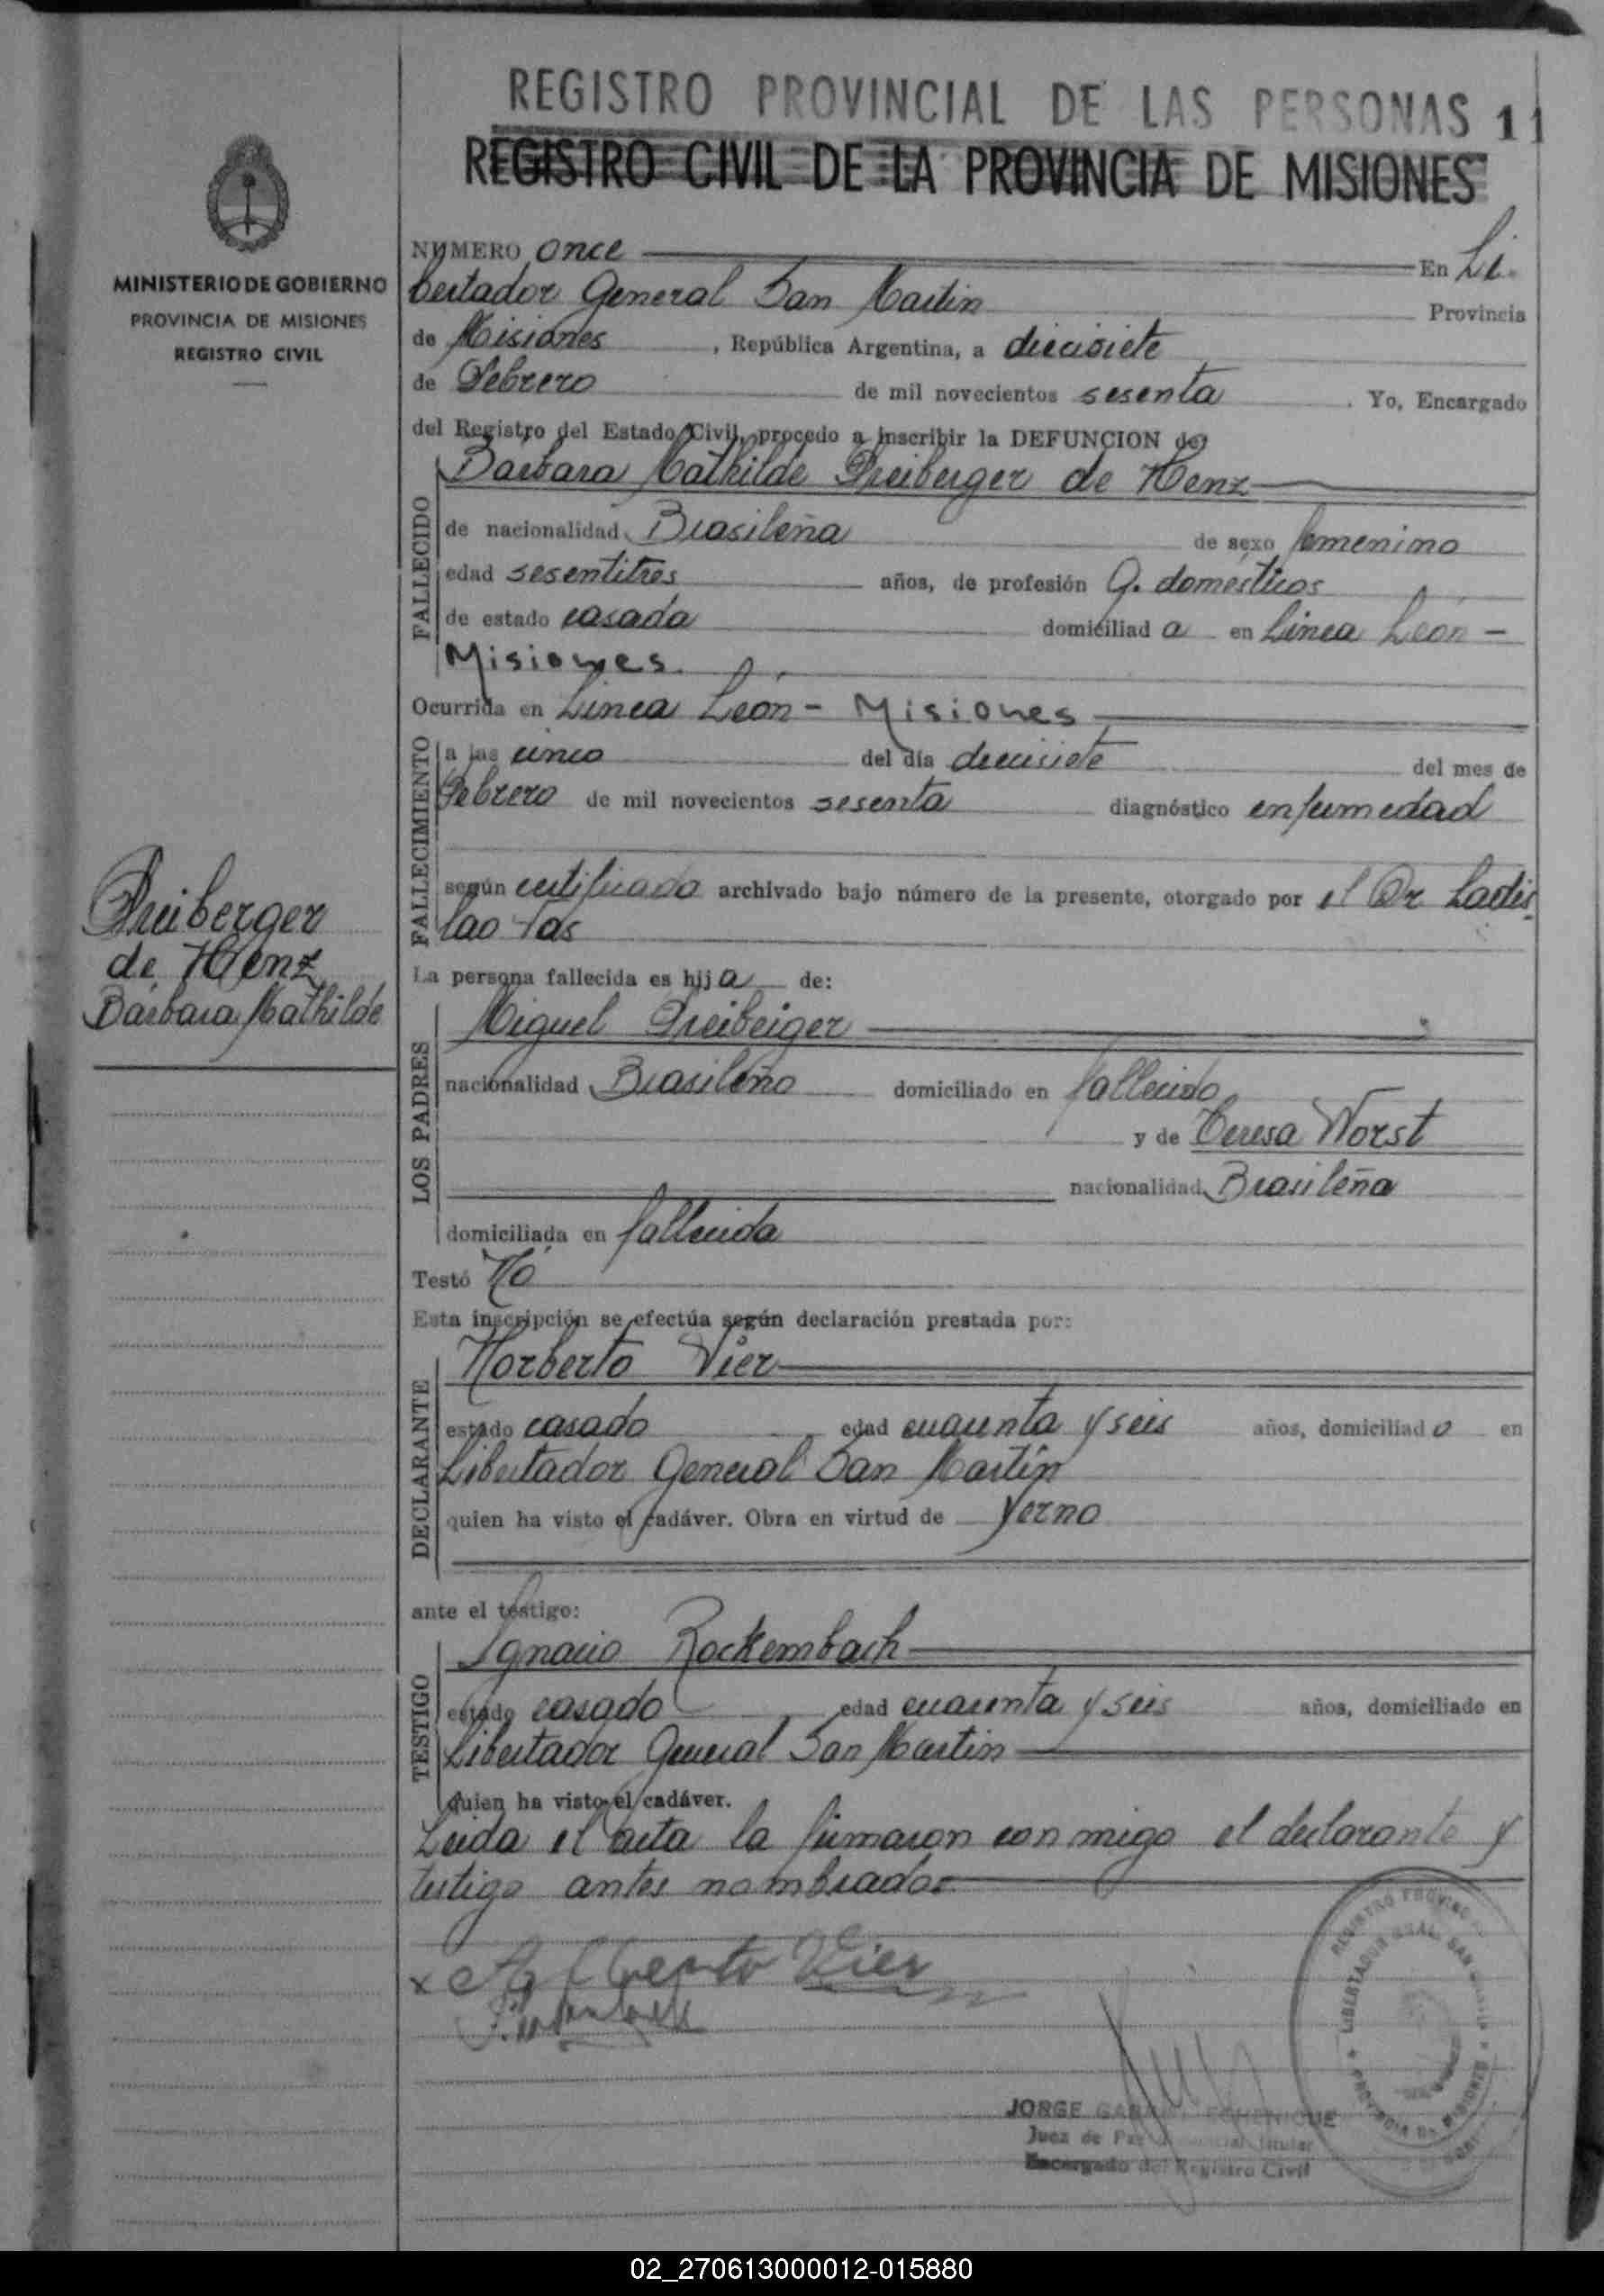 REGISTRO PROVINCIAL DE LAS PERSONAS 11
REGISTRO CIVIL DE LA PROVINCIA DE MISIONES
MINISTERIO DE GOBIERNO
PROVINCIA DE MISIONES
REGISTRO CIVIL
NUMERO once En Li-
bertador General San Martin Provincia
de Misiones, República Argentina, a diecisiete
de Febrero de mil novecientos sesenta. Yo, Encargado
del Registro del Estado Civil, procedo a inscribir la DEFUNCION de:
Bárbara Mathilde Preiberger de Henz
FALLECIDO
de nacionalidad Brasileña de sexo femenino
edad sesentitres años, de profesión Q. domésticos
de estado casada domiciliada en Linea León -
Misiones.
Ocurrida en Linea León - Misiones
FALLECIMIENTO
a las cinco del día diecisiete del mes de
Febrero de mil novecientos sesenta diagnóstico enfermedad
según certificado archivado bajo número de la presente, otorgado por el Dr Ladis-
lao
Preiberger
de Henz
Bárbara Mathilde
La persona fallecida es hija de:
LOS PADRES
Miguel Preiberger
nacionalidad Brasileño domiciliado en fallecido
y de Teresa Worst
nacionalidad Brasileña
domiciliada en fallecida
Testó Nó
Esta inscripción se efectúa según declaración prestada por:
DECLARANTE
Norberto Vier
estado casado edad cuarenta y seis años, domiciliado en
Libertador General San Martín
quien ha visto el cadáver. Obra en virtud de Yerno
ante el testigo:
TESTIGO
Ignacio Rockembach
estado casado edad cuarenta y seis años, domiciliado en
Libertador General San Martin
quien ha visto el cadáver.
Leida el acta la firmaron conmigo el declarante y
testigo antes nombrados
x Vier
JORGE ECHENIQUE
Juez de Paz Titular
Encargado del Registro Civil
02_270613000012-015880